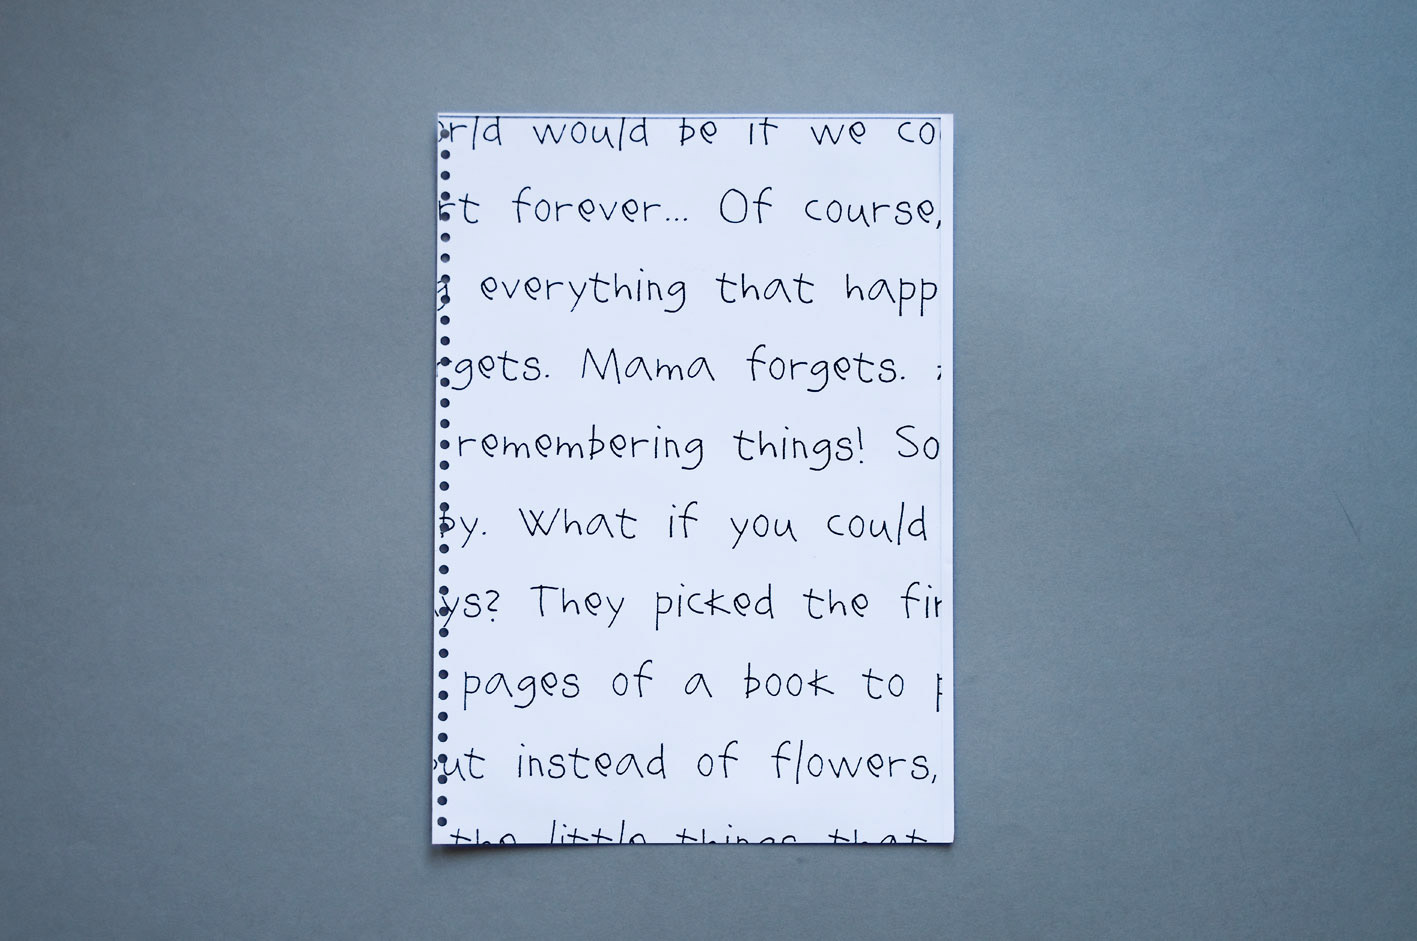 orld would be if we co
rt forever... Of course,
everything that happ
gets. Mama forgets.
remembering things! So
by. What if you could
ys? They picked the fir
pages of a book to p
ut instead of flowers,
the little things that